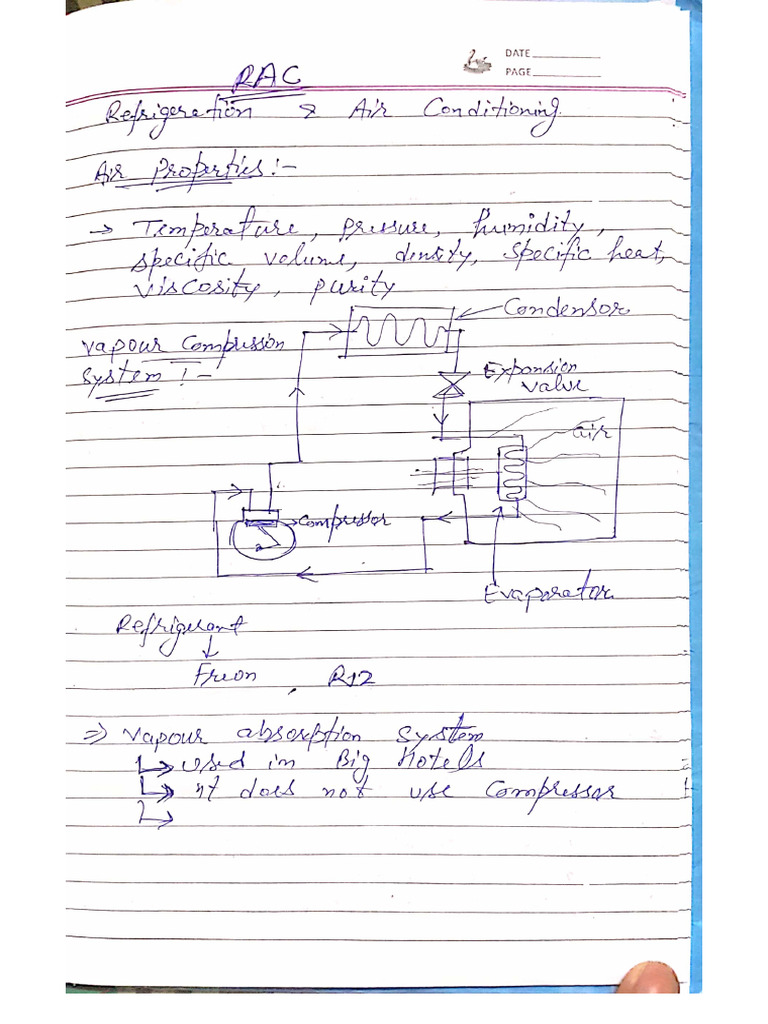 DATE
PAGE
RAC
Refrigeration & Air Conditioning.
Air Properties :-
→ Temperature, pressure, humidity,
specific volume, density, specific heat,
viscosity, purity
Condensor
vapour Compression
System :-
Expansion
valve
air
compressor
Evaporator
Refrigerant
↓
Freon, R12
⇒ vapour absorption system
↳ used in Big Hotels
↳ it does not use compressor
↳